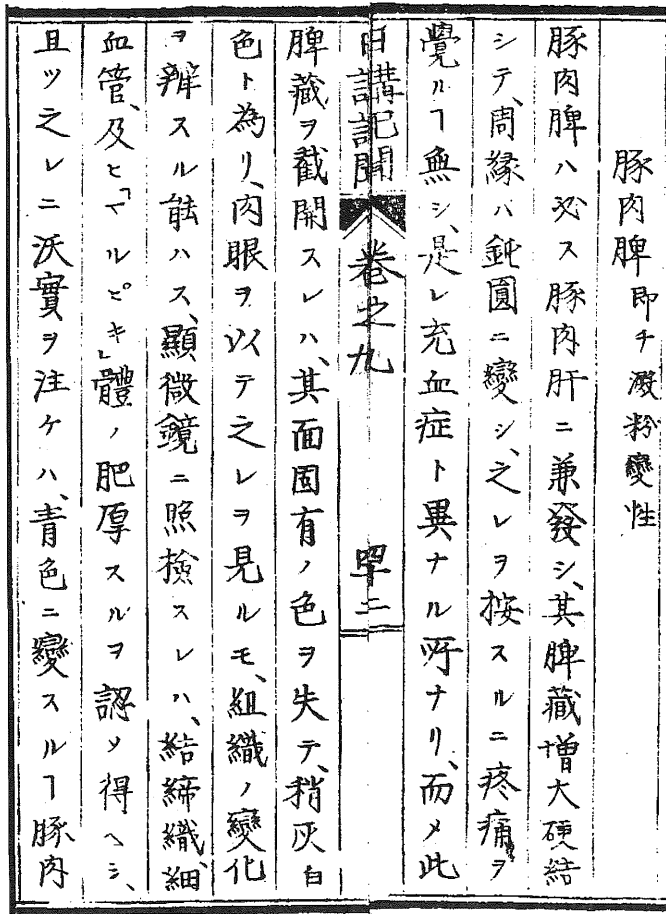 豚肉脾即チ澱粉變性
豚肉脾ハ必ス豚肉肝ニ兼發シ、其脾藏增大硬結
シテ、周緣ハ鈍圓ニ變シ、之レヲ按スルニ疼痛ヲ
覺ルヿ無シ、是レ充血症ト異ナル所ナリ、而〆此
日講記聞 卷之九 四十二
脾藏ヲ截開スレハ、其面固有ノ色ヲ失テ、稍灰白
色ト為リ、肉眼ヲ以テ之レヲ見ルモ、組織ノ變化
ヲ辨スル能ハス、顯微鏡ニ照撿スレハ、結締織、細
血管、及ヒ「マルピキ」體ノ肥厚スルヲ認メ得ヘシ、
且ツ之レニ沃實ヲ注ケハ、青色ニ變スルヿ豚肉